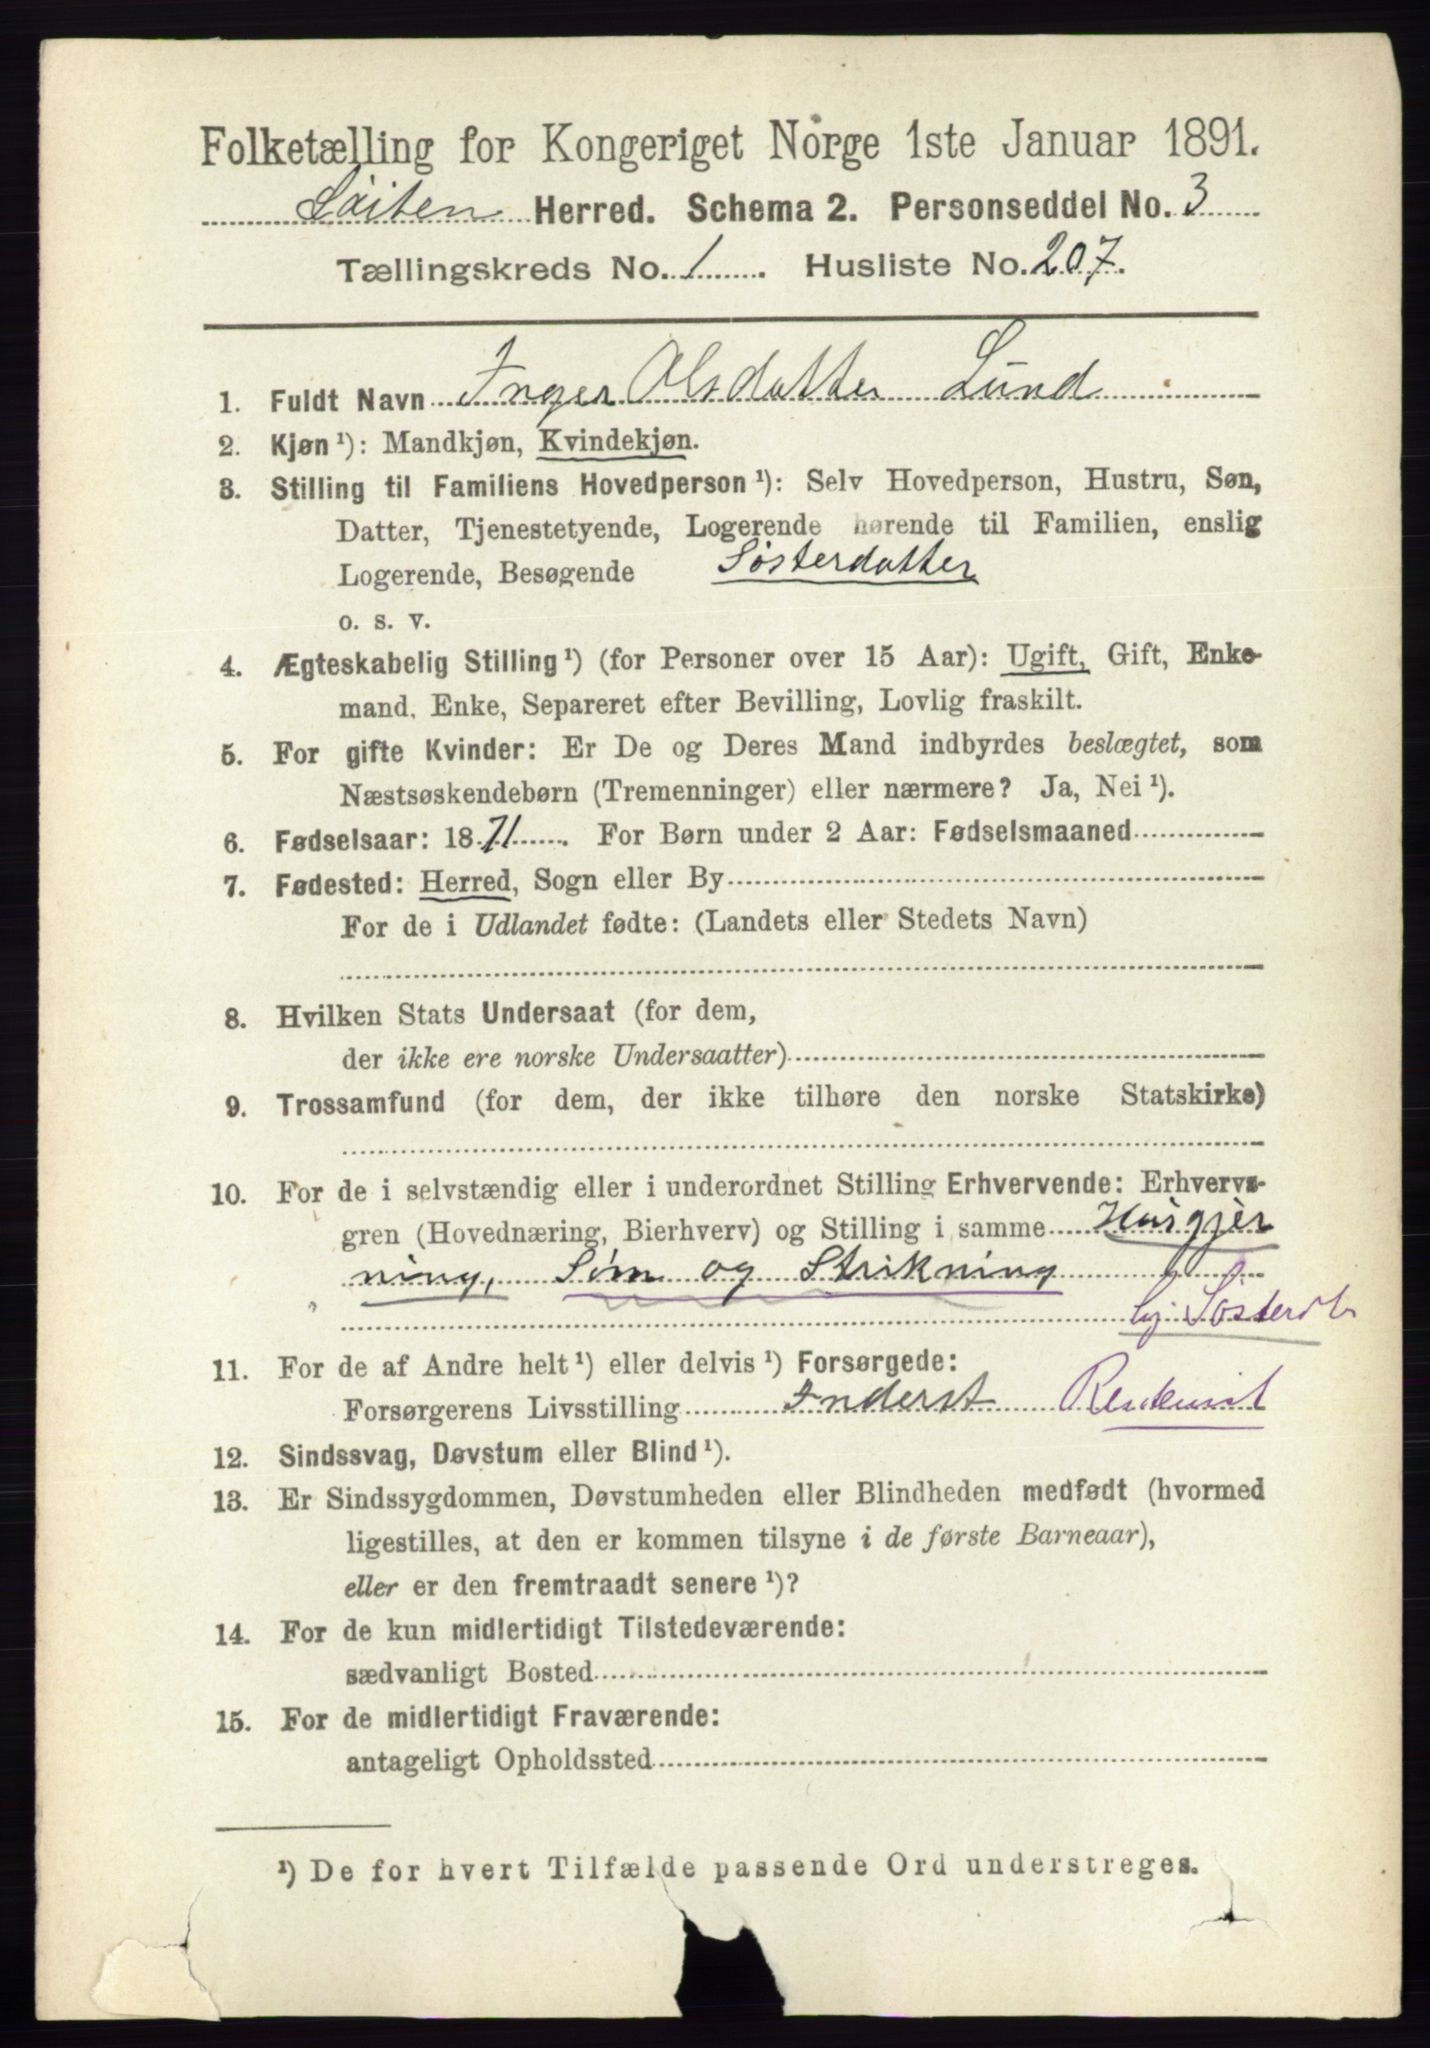 Folketælling for Kongeriget Norge 1ste Januar 1891.
Løiten Herred. Schema 2. Personseddel No. 3
Tællingskreds No. 1. Husliste No. 207.
1. Fuldt Navn Inger Olsdatter Lund
2. Kjøn ¹): Mandkjøn, Kvindekjøn.
3. Stilling til Familiens Hovedperson ¹): Selv Hovedperson, Hustru, Søn,
Datter, Tjenestetyende, Logerende hørende til Familien, enslig
Logerende, Besøgende Søsterdatter
o. s. v.
4. Ægteskabelig Stilling ¹) (for Personer over 15 Aar): Ugift, Gift, Enke-
mand, Enke, Separeret efter Bevilling, Lovlig fraskilt.
5. For gifte Kvinder: Er De og Deres Mand indbyrdes beslægtet, som
Næstsøskendebørn (Tremenninger) eller nærmere? Ja, Nei ¹).
6. Fødselsaar: 1871. For Børn under 2 Aar: Fødselsmaaned
7. Fødested: Herred, Sogn eller By
For de i Udlandet fødte: (Landets eller Stedets Navn)
8. Hvilken Stats Undersaat (for dem,
der ikke ere norske Undersaatter)
9. Trossamfund (for dem, der ikke tilhøre den norske Statskirke)
10. For de i selvstændig eller i underordnet Stilling Erhvervende: Erhvervs-
gren (Hovednæring, Bierhverv) og Stilling i samme Husgjer
ning, Søm og Strikning
hj. Søsterdtr
11. For de af Andre helt ¹) eller delvis ¹) Forsørgede:
Forsørgerens Livsstilling Inderst
12. Sindssvag, Døvstum eller Blind ¹).
13. Er Sindssygdommen, Døvstumheden eller Blindheden medfødt (hvormed
ligestilles, at den er kommen tilsyne i de første Barneaar),
eller er den fremtraadt senere ¹)?
14. For de kun midlertidigt Tilstedeværende:
sædvanligt Bosted
15. For de midlertidigt Fraværende:
antageligt Opholdssted
¹) De for hvert Tilfælde passende Ord understreges.